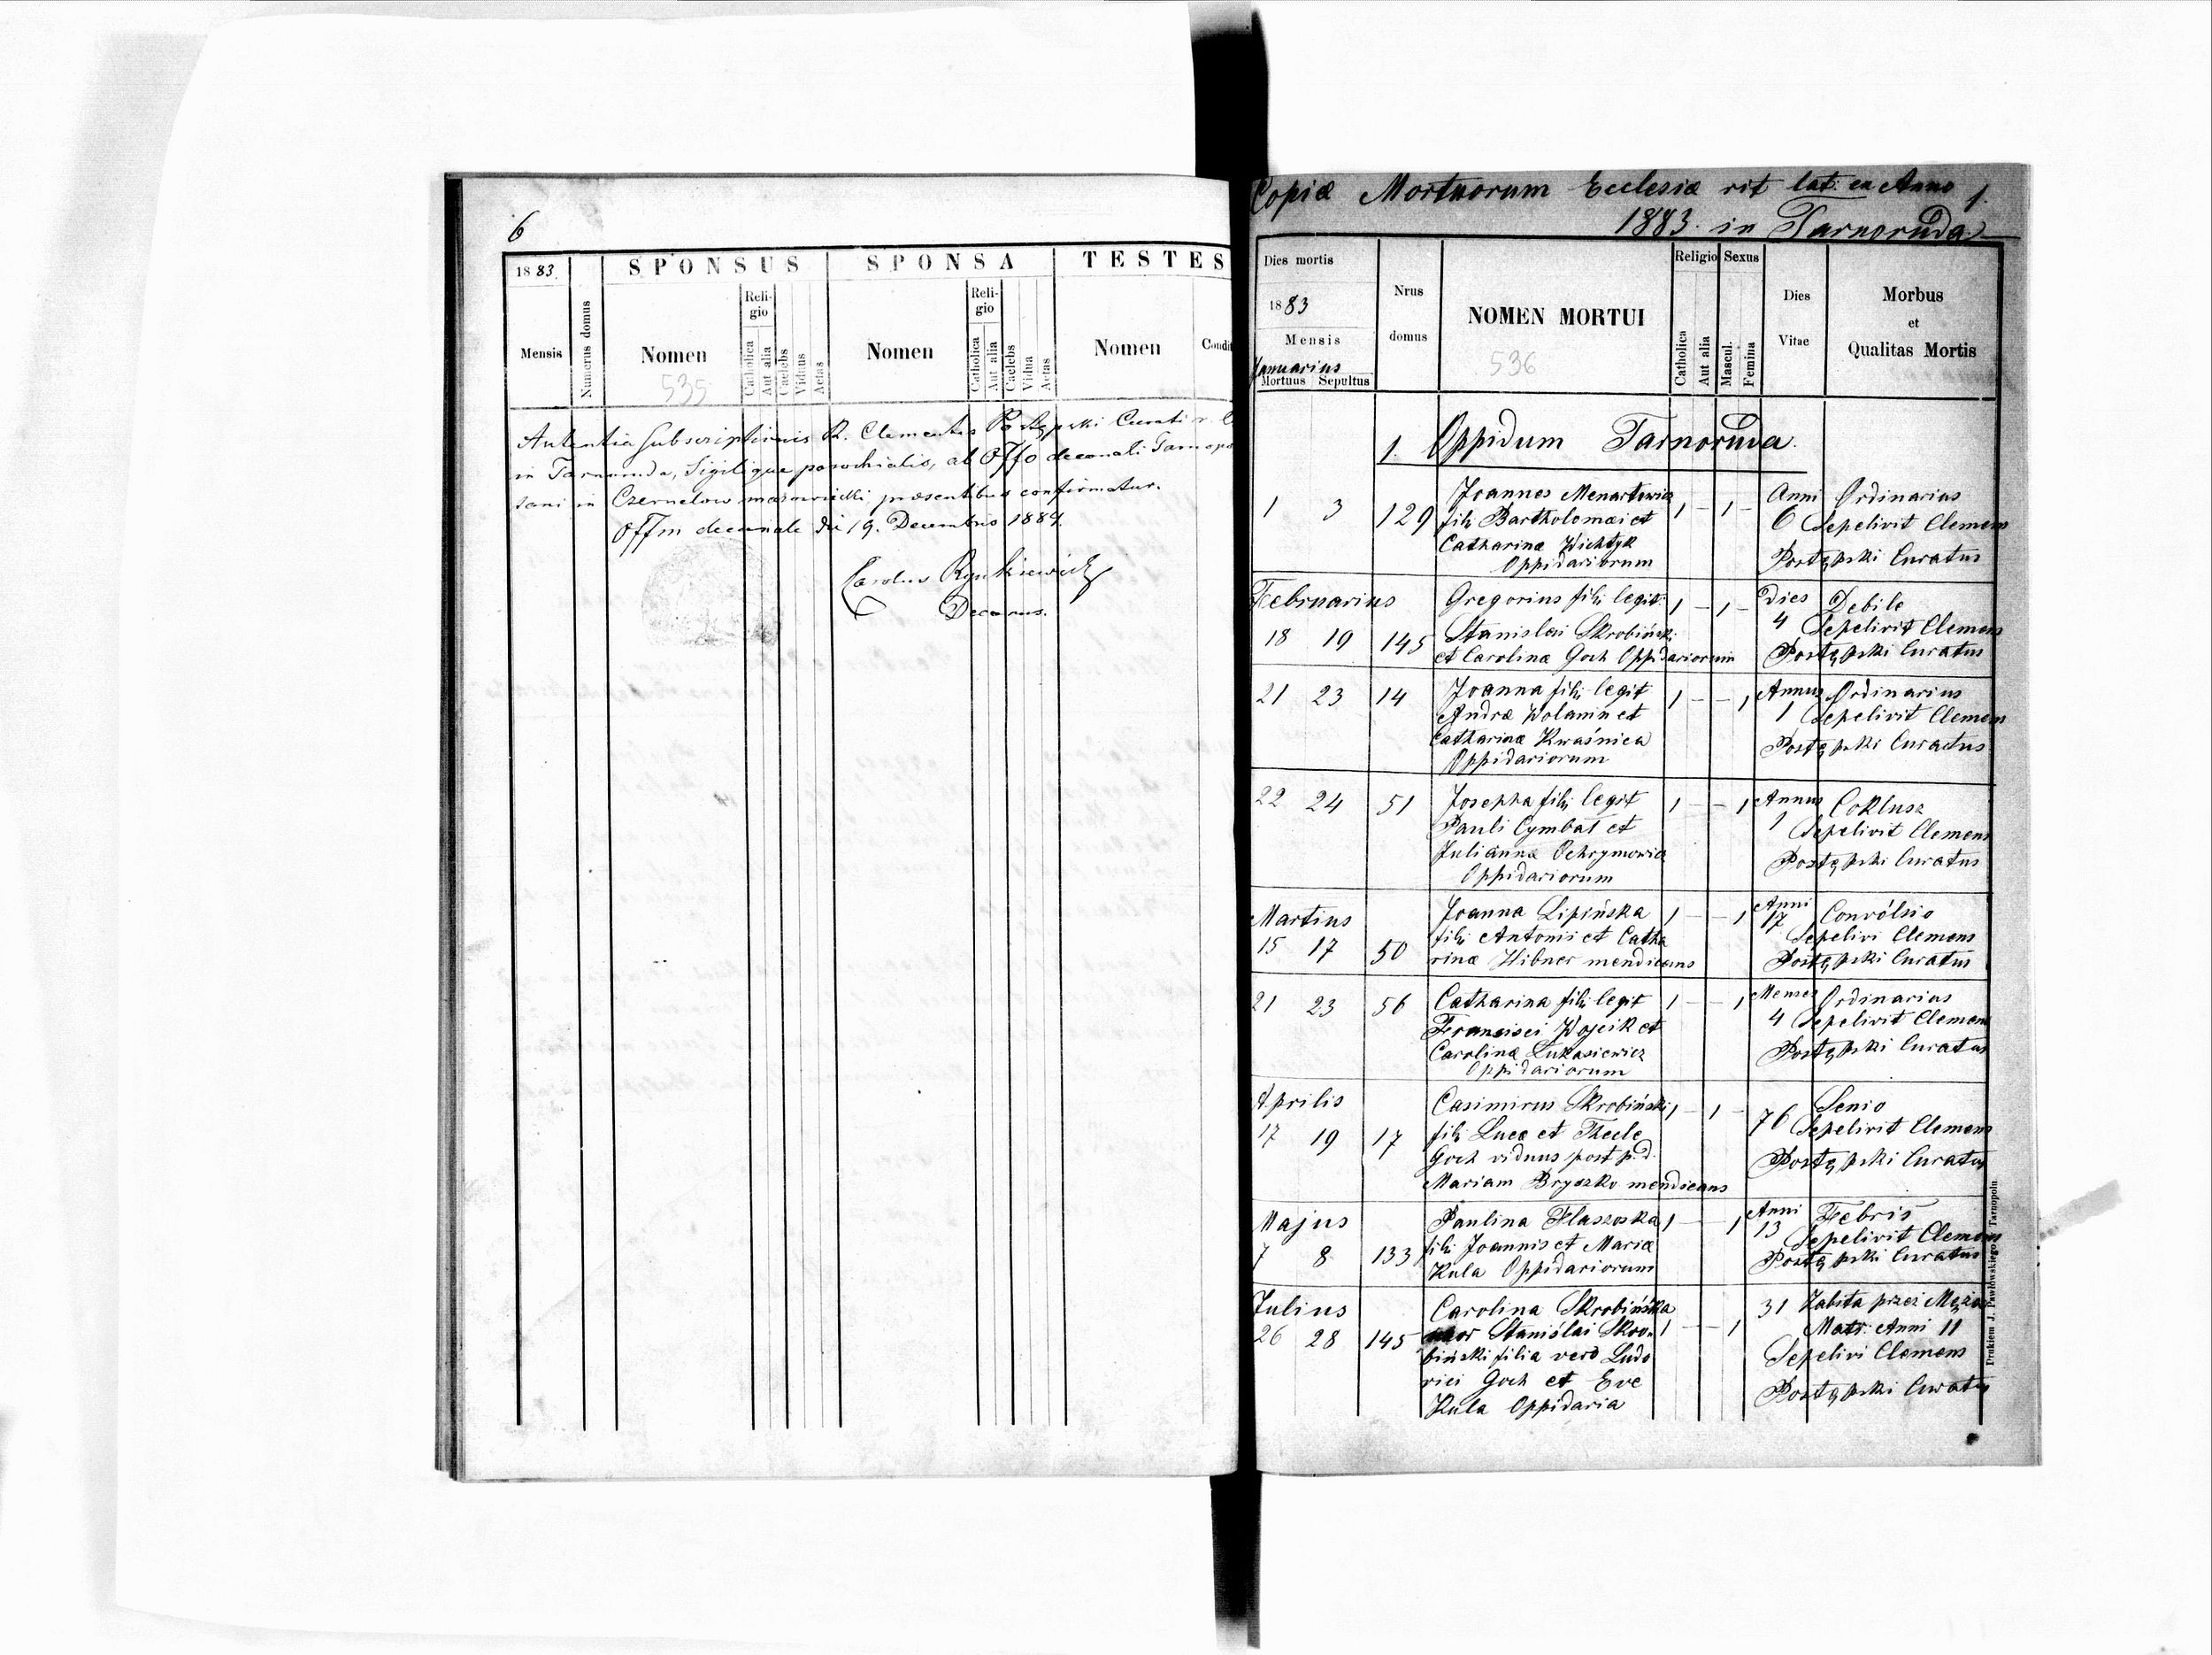 6
1883.
SPONSUS
SPONSA
TESTES
Mensis
Numerus domus
Nomen
Reli-
gio
Catholica
Aut alia
Caelebs
Viduus
Aetas
Nomen
Reli-
gio
Catholica
Aut alia
Caelebs
Vidua
Aetas
Nomen
535
Subscriptionis R. Clementis Postępski Curati r.
in Tarnoruda, Sigilique parochialis, ab Offo decanali
in Czernelow mazowiecki praesentibus confirmatur.
Offm decanale die 19. Decembris 1884.
Carolus
Decanus.
Copiæ Mortuorum Ecclesiæ rit lat: ex Anno 1.
1883. in Tarnoruda
Dies mortis
1883
Mensis
Januarius
Mortuus Sepultus
Nrus
domus
NOMEN MORTUI
536
Religio
Catholica
Aut alia
Sexus
Mascul.
Femina
Dies
Vitae
Morbus
et
Qualitas Mortis
1. Oppidum Tarnoruda.
1 3 129 Joannes Menartowicz 1 - 1 - Anni Ordinarius
fili Bartholomæi et 6 Sepelivit Clemens
Catharinæ Wichtyk Postępski Curatus
Oppidariorum
Februarius Gregorius fili legit: 1 - 1 - Dies Debile
18 19 145 Stanislai Skrobiński 4 Sepelivit Clemens
et Carolinæ Goch Oppidariorum Postępski Curatus
21 23 14 Joanna fili legit 1 - - 1 Annus Ordinarius
Andræ Wolanin et 1 Sepelivit Clemens
Catharinæ Kwaśnica Postępski Curatus
Oppidariorum
22 24 51 Josepha fili legit 1 - - 1 Annus Coklusz
Pauli Cymbał et 1 Sepelivit Clemens
Juliannæ Ochrymowicz Postępski Curatus
Oppidariorum
Martius Joanna Lipińska 1 - - 1 Anni 17 Convólsio
15 17 50 fili Antonii et Catha Sepelivi Clemens
rinæ Hibner mendicans Postępski Curatus
21 23 56 Catharina fili legit 1 - - 1 Menses Ordinarius
Francisci Wojcik et 4 Sepelivit Clemens
Carolinæ Lukasiewicz Postępski Curatus
Oppidariorum
Aprilis Casimirus Skrobiński 1 - 1 - 76 Senio
17 19 17 fili Lucæ et Thecle Sepelivit Clemens
Goch viduus post p.d. Postępski Curatus
Mariam Bryszko mendicans
Majus Paulina Flaszoska 1 - 1 Anni 13 Febris
7 8 133 fili Joannis et Mariæ Sepelivit Clemens
Kula Oppidariorum Postępski Curatus
Julius Carolina Skrobińska 31 Zabita przez Męża
26 28 145 uxor Stanislai Skro- 1 - - 1 Matr: Anni 11
biński filia vero Ludo Sepelivi Clemens
vici Goch et Eve Postępski Curatus
Kula Oppidaria
Drukiem J. Pawłowskiego w Tarnopolu